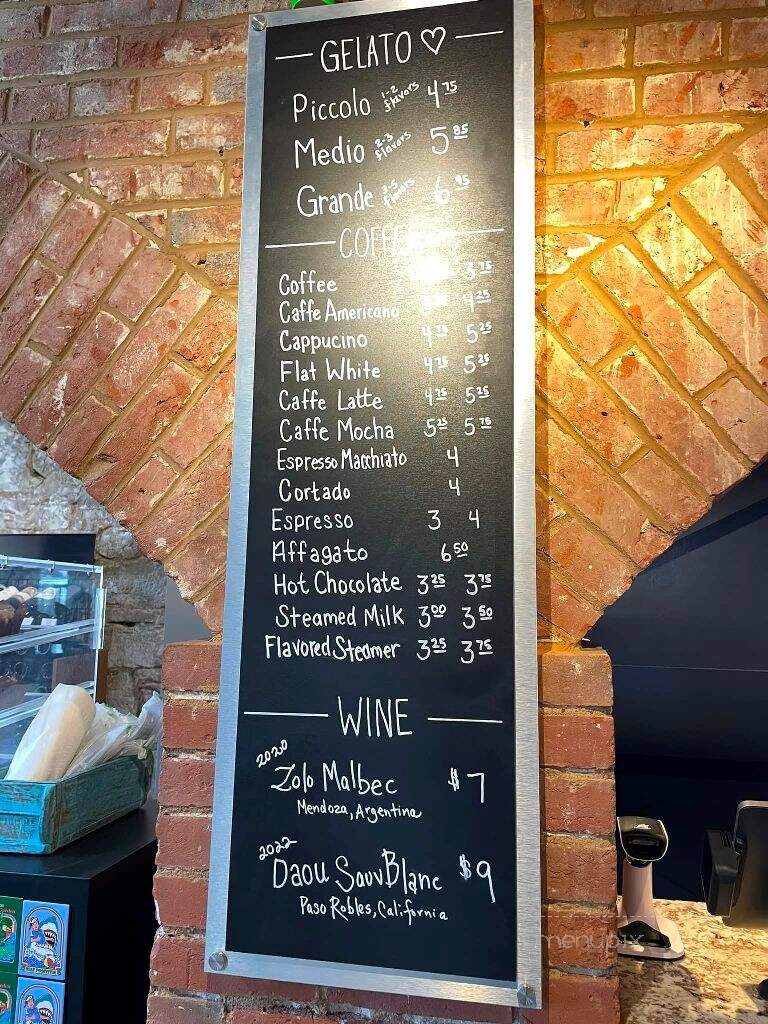 GELATO
Piccolo 1-2 flavors 4 75
Medio 2-3 flavors 5 85
Grande 3-5 flavors 6 95
COFFEE
Coffee 3 75
Caffe Americano 4 25
Cappucino 4 75 5 25
Flat White 4 75 5 25
Caffe Latte 4 75 5 25
Caffe Mocha 5 25 5 75
Espresso Macchiato 4
Cortado 4
Espresso 3 4
Affagato 6 50
Hot Chocolate 3 25 3 75
Steamed Milk 3 00 3 50
Flavored Steamer 3 25 3 75
WINE
2020
Zolo Malbec $7
Mendoza, Argentina
2022
Daou Sauv Blanc $9
Paso Robles, California
menupix